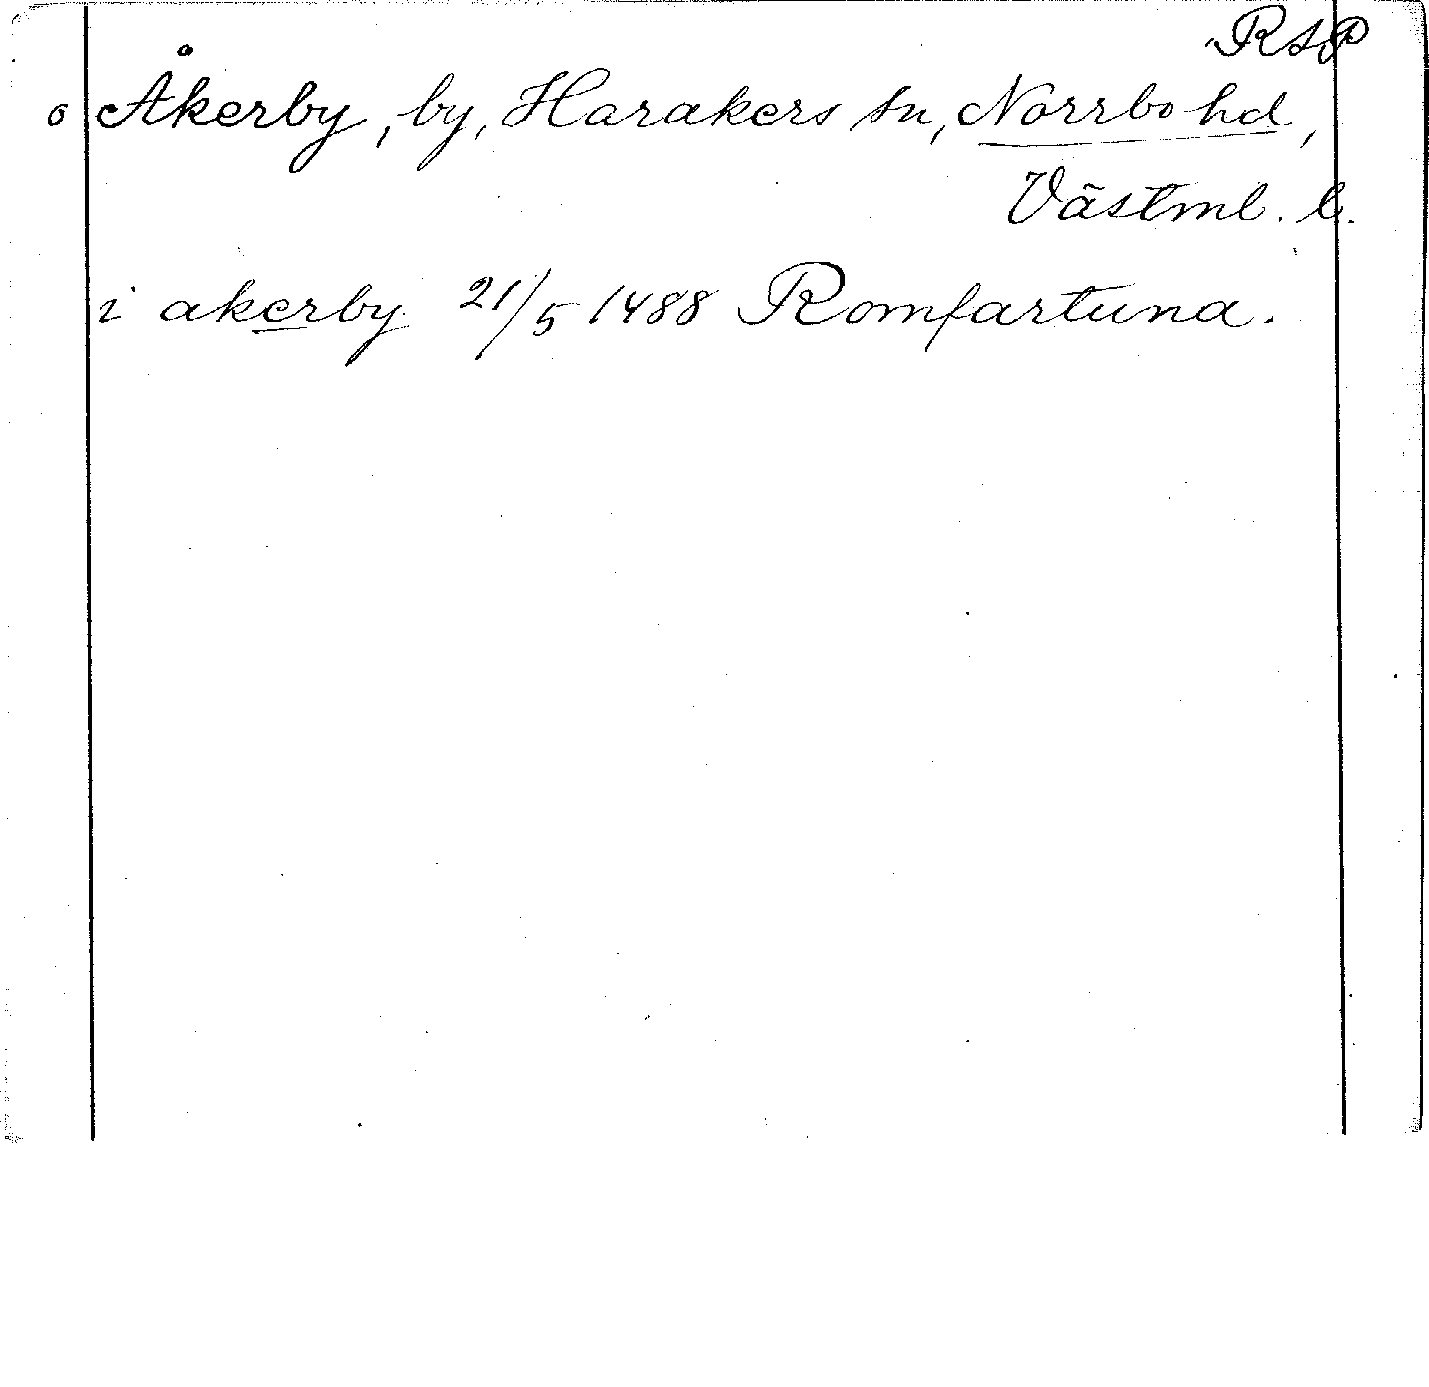 RAP
o Åkerby, by, Harakers sn, Norrbo hd,
Västml. l.
i akerby 21/5 1488 Romfartuna.